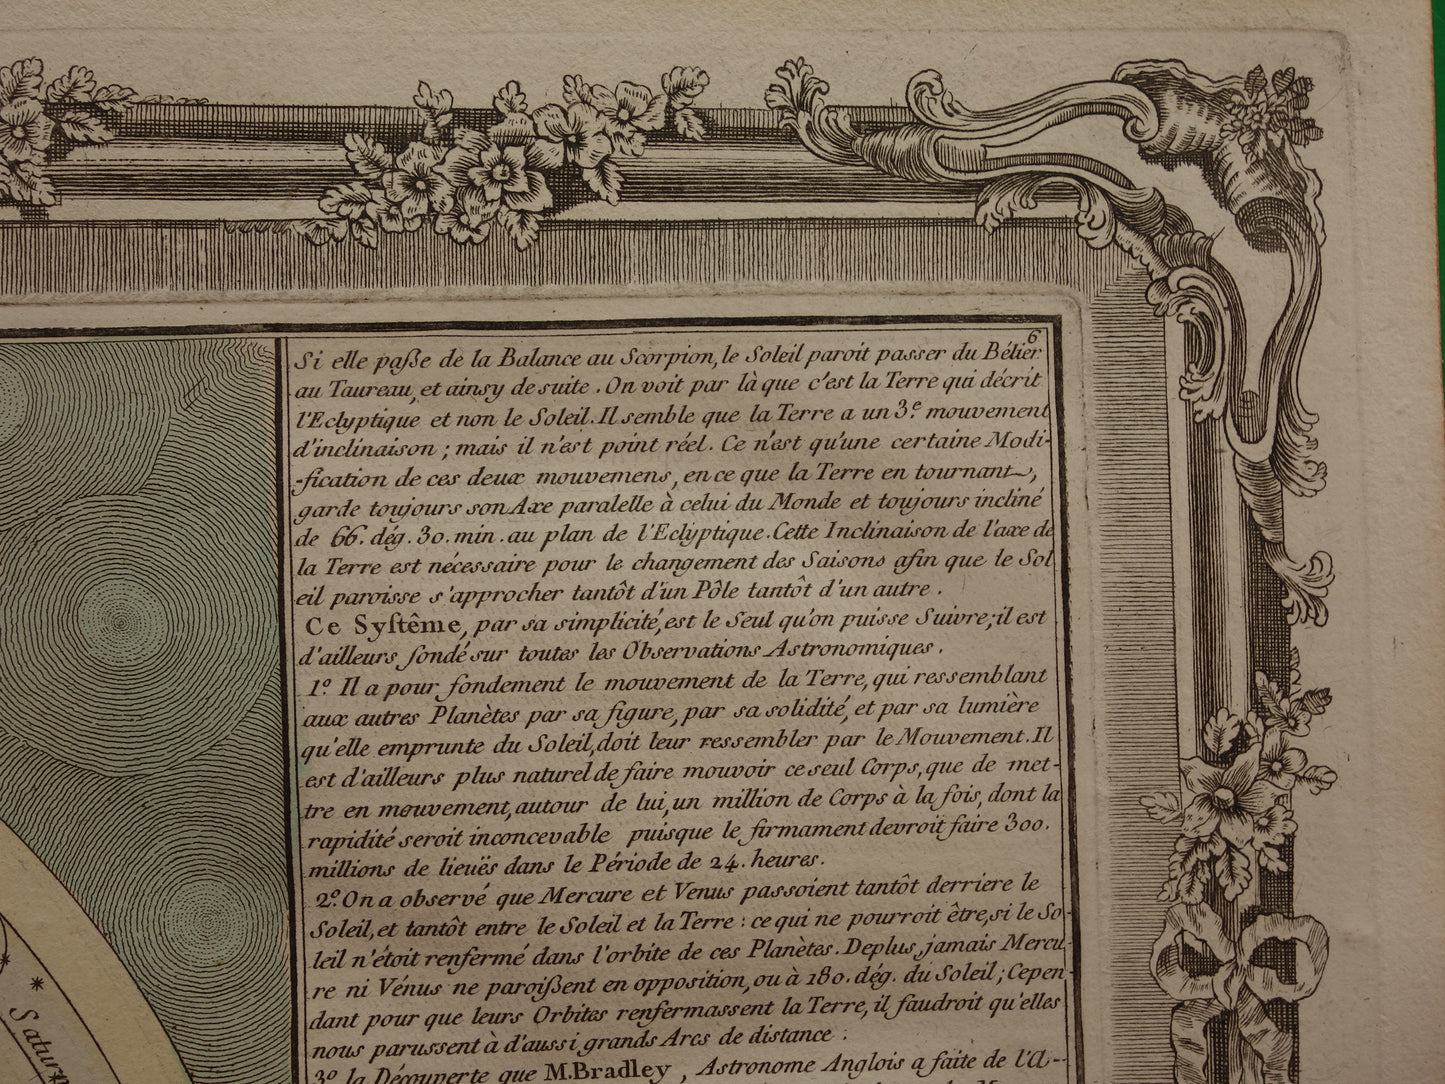 6
Si elle paſse de la Balance au Scorpion, le Soleil paroit passer du Bélier
au Taureau, et ainsy de suite. On voit par là que c'est la Terre qui décrit
l'Eclyptique et non le Soleil. Il semble que la Terre a un 3.e mouvement
d'inclinaison; mais il n'est point réel. Ce n'est qu'une certaine Modi-
-fication de ces deux mouvemens, en ce que la Terre en tournant,
garde toujours son Axe paralelle à celui du Monde et toujours incliné
de 66. dég. 30. min. au plan de l'Eclyptique. Cette Inclinaison de l'axe de
la Terre est nécessaire pour le changement des Saisons afin que le Sol
eil paroisse s'approcher tantôt d'un Pôle tantôt d'un autre.
Ce Syſtême, par sa simplicité, est le Seul qu'on puisse Suivre; il est
d'ailleurs fondé sur toutes les Observations Astronomiques.
1.º Il a pour fondement le mouvement de la Terre, qui ressemblant
aux autres Planètes par sa figure, par sa solidité, et par sa lumière
qu'elle emprunte du Soleil, doit leur ressembler par le Mouvement. Il
est d'ailleurs plus naturel de faire mouvoir ce seul Corps, que de met-
tre en mouvement, autour de lui, un million de Corps à la fois, dont la
rapidité seroit inconcevable puisque le firmament devroit faire 300.
millions de lieuës dans le Période de 24. heures.
2.º On a observé que Mercure et Venus passoient tantôt derriere le
Soleil, et tantôt entre le Soleil et la Terre: ce qui ne pourroit être, si le So-
leil n'étoit renfermé dans l'orbite de ces Planètes. Deplus, jamais Mercu-
re ni Vénus ne paroiſsent en opposition, ou à 180. dég. du Soleil; Cepen-
dant pour que leurs Orbites renfermassent la Terre, il faudroit qu'elles
nous parussent à d'aussi grands Arcs de distance.
3º la Découverte que M. Bradley, Astronome Anglois a faite de l'A-
Satur